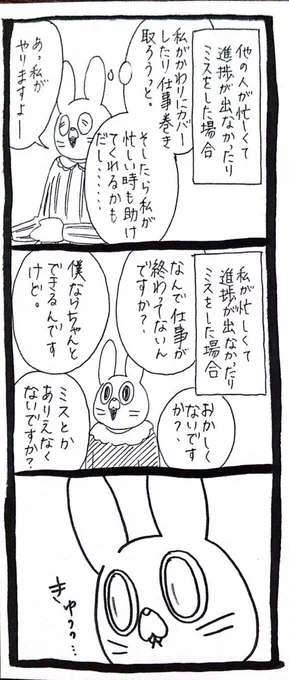 他の人が忙しくて
進捗が出なかったり
ミスをした場合
私がかわりにカバー
したり仕事巻き
取ろうっと。
そしたら私が
忙しい時も助け
てくれるかも
だし……
あっ私が
やりますよー
私が忙しくて
進捗が出なかったり
ミスをした場合
なんで仕事が
終わってないん
ですか？
おかしく
ないです
か？、
僕ならちゃんと
できるんです
けど。
ミスとか
ありえなく
ないですか？
きゅうっ…